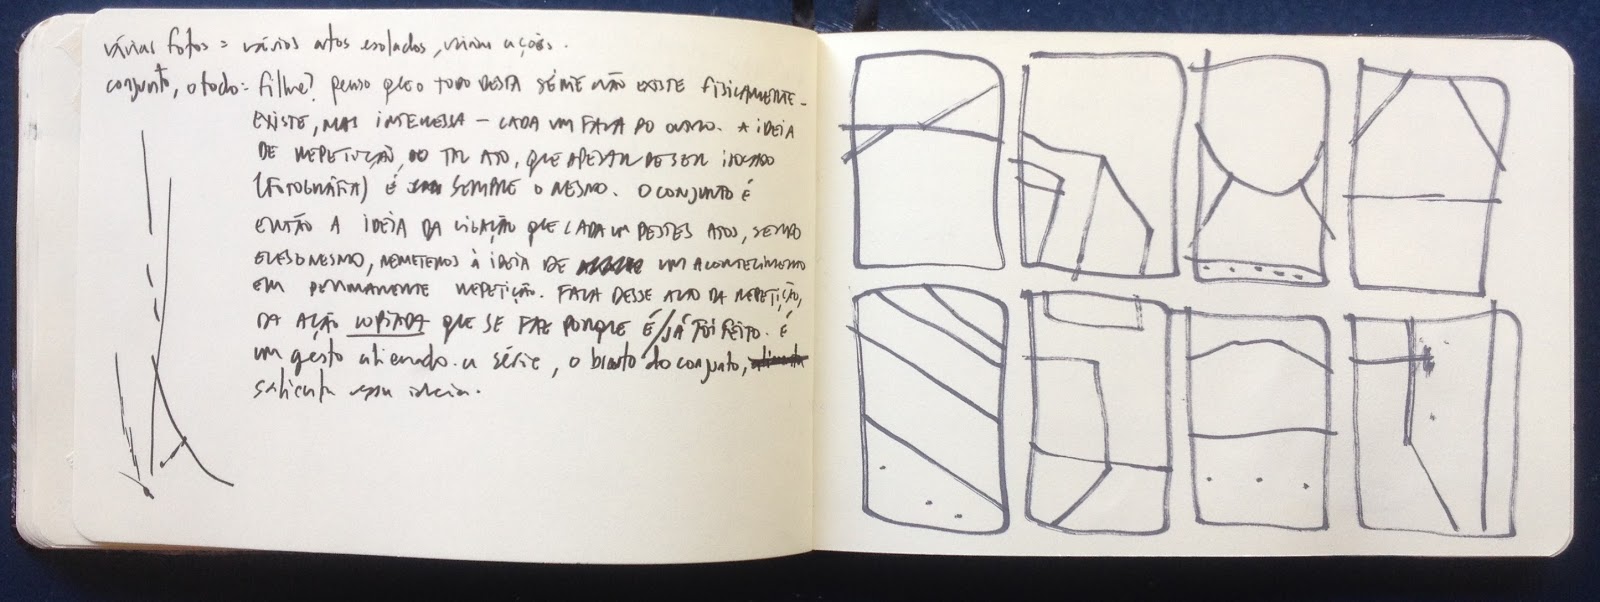 várias fotos = vários atos isolados, várias ações.
conjunto, o todo = filme? penso que o todo DESTA SÉRIE NÃO EXISTE FISICAMENTE -
EXISTE, MAS INTERESSA - CADA UM FALA DO OUTRO. A IDEIA
DE REPETIÇÃO, DO TAL ATO, QUE APESAR DE SER ISOLADO
(FOTOGRAFIA) É SEMPRE O MESMO. O CONJUNTO É
ENTÃO A IDEIA DA LIGAÇÃO QUE CADA UM DESTES ATOS, SENDO
ELES O MESMO, REMETEREM À IDEIA DE UM ACONTECIMENTO
EM PERMANENTE REPETIÇÃO. FALA DESSE ALGO DA REPETIÇÃO,
DA AÇÃO COPIADA QUE SE FAZ PORQUE É/JÁ FOI FEITO. É
um gesto alienado. a série, o bruto do conjunto,
salienta essa ideia.